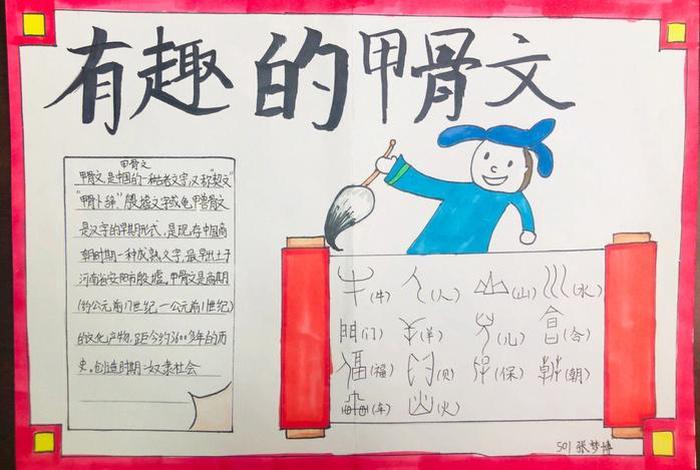 有趣的甲骨文
甲骨文
甲骨文是中国的一种古老文字,又称"契文"
"甲卜辞"殷墟文字或龟甲兽骨文
是汉字的早期形式,是现存中国商
朝时期一种成熟文字,最早出土于
河南省安阳市殷墟。甲骨文是商期
(约公元前17世纪—公元前11世纪)
的文化产物,距今约3600多年的历
史。创造时期:奴隶社会
(牛) (人) (山) (水)
(门) (羊) (儿) (合)
(福) (贝) (保) (朝)
(车) (火)
501 张梦博